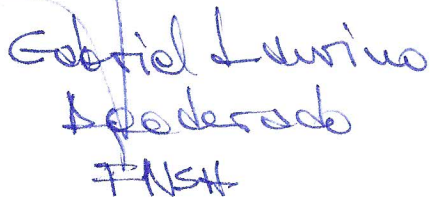 Gabriel Laurino
Apoderado
FNSH